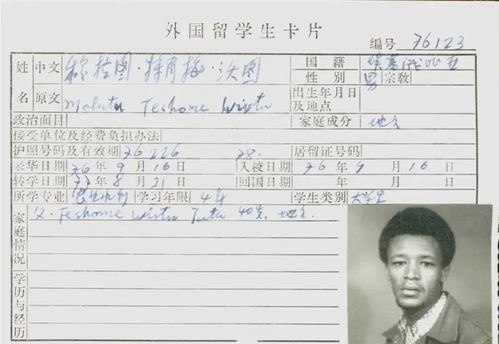 外国留学生卡片
编号 76123
姓 中文 穆拉图·特肖梅·沃图 国籍 埃塞俄比亚
性别 男 宗教
名 原文 Mulatu Teshome Wirtu 出生年月日及地点
政治面目 家庭成分 地主
接受单位及经费负担办法
护照号码及有效期 76226 78. 居留证号码
来华日期 76年9月16日 入校日期 76年9月16日
转学日期 77年8月31日 回国日期 年 月 日
所学专业 学习年限 4年 学生类别 大学生
家庭情况 父. Teshome Wirtu 40岁, 地主.
学历与经历